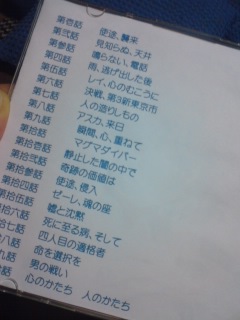 第壱話 使徒、襲来
第弐話 見知らぬ、天井
第参話 鳴らない、電話
第四話 雨、逃げ出した後
第伍話 レイ、心のむこうに
第六話 決戦、第3新東京市
第七話 人の造りしもの
第八話 アスカ、来日
第九話 瞬間、心、重ねて
第拾話 マグマダイバー
第拾壱話 静止した闇の中で
第拾弐話 奇跡の価値は
第拾参話 使徒、侵入
第拾四話 ゼーレ、魂の座
第拾伍話 嘘と沈黙
拾六話 死に至る病、そして
拾七話 四人目の適格者
八話 命を選択を
九話 男の戦い
話 心のかたち 人のかたち